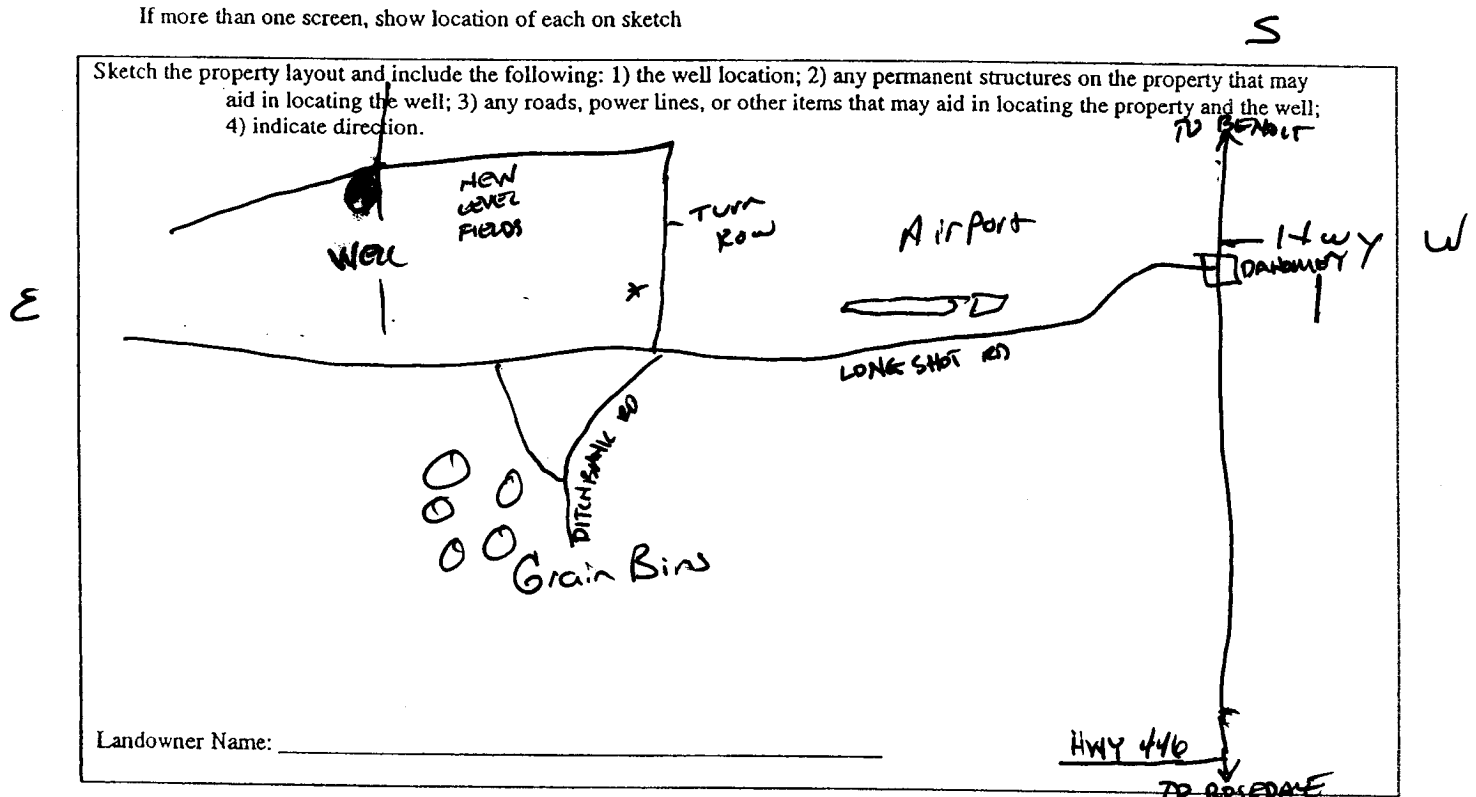 If more than one screen, show location of each on sketch
S
Sketch the property layout and include the following: 1) the well location; 2) any permanent structures on the property that may
aid in locating the well; 3) any roads, power lines, or other items that may aid in locating the property and the well;
4) indicate direction.
TO BENOIT
NEW
LEVEL
FIELDS
TURN
ROW
Airport
Hwy
1
W
WELL
DAHOMEY
E
LONG SHOT RD
DITCHBANK RD
Grain Bins
Landowner Name:
HWY 446
TO ROSEDALE